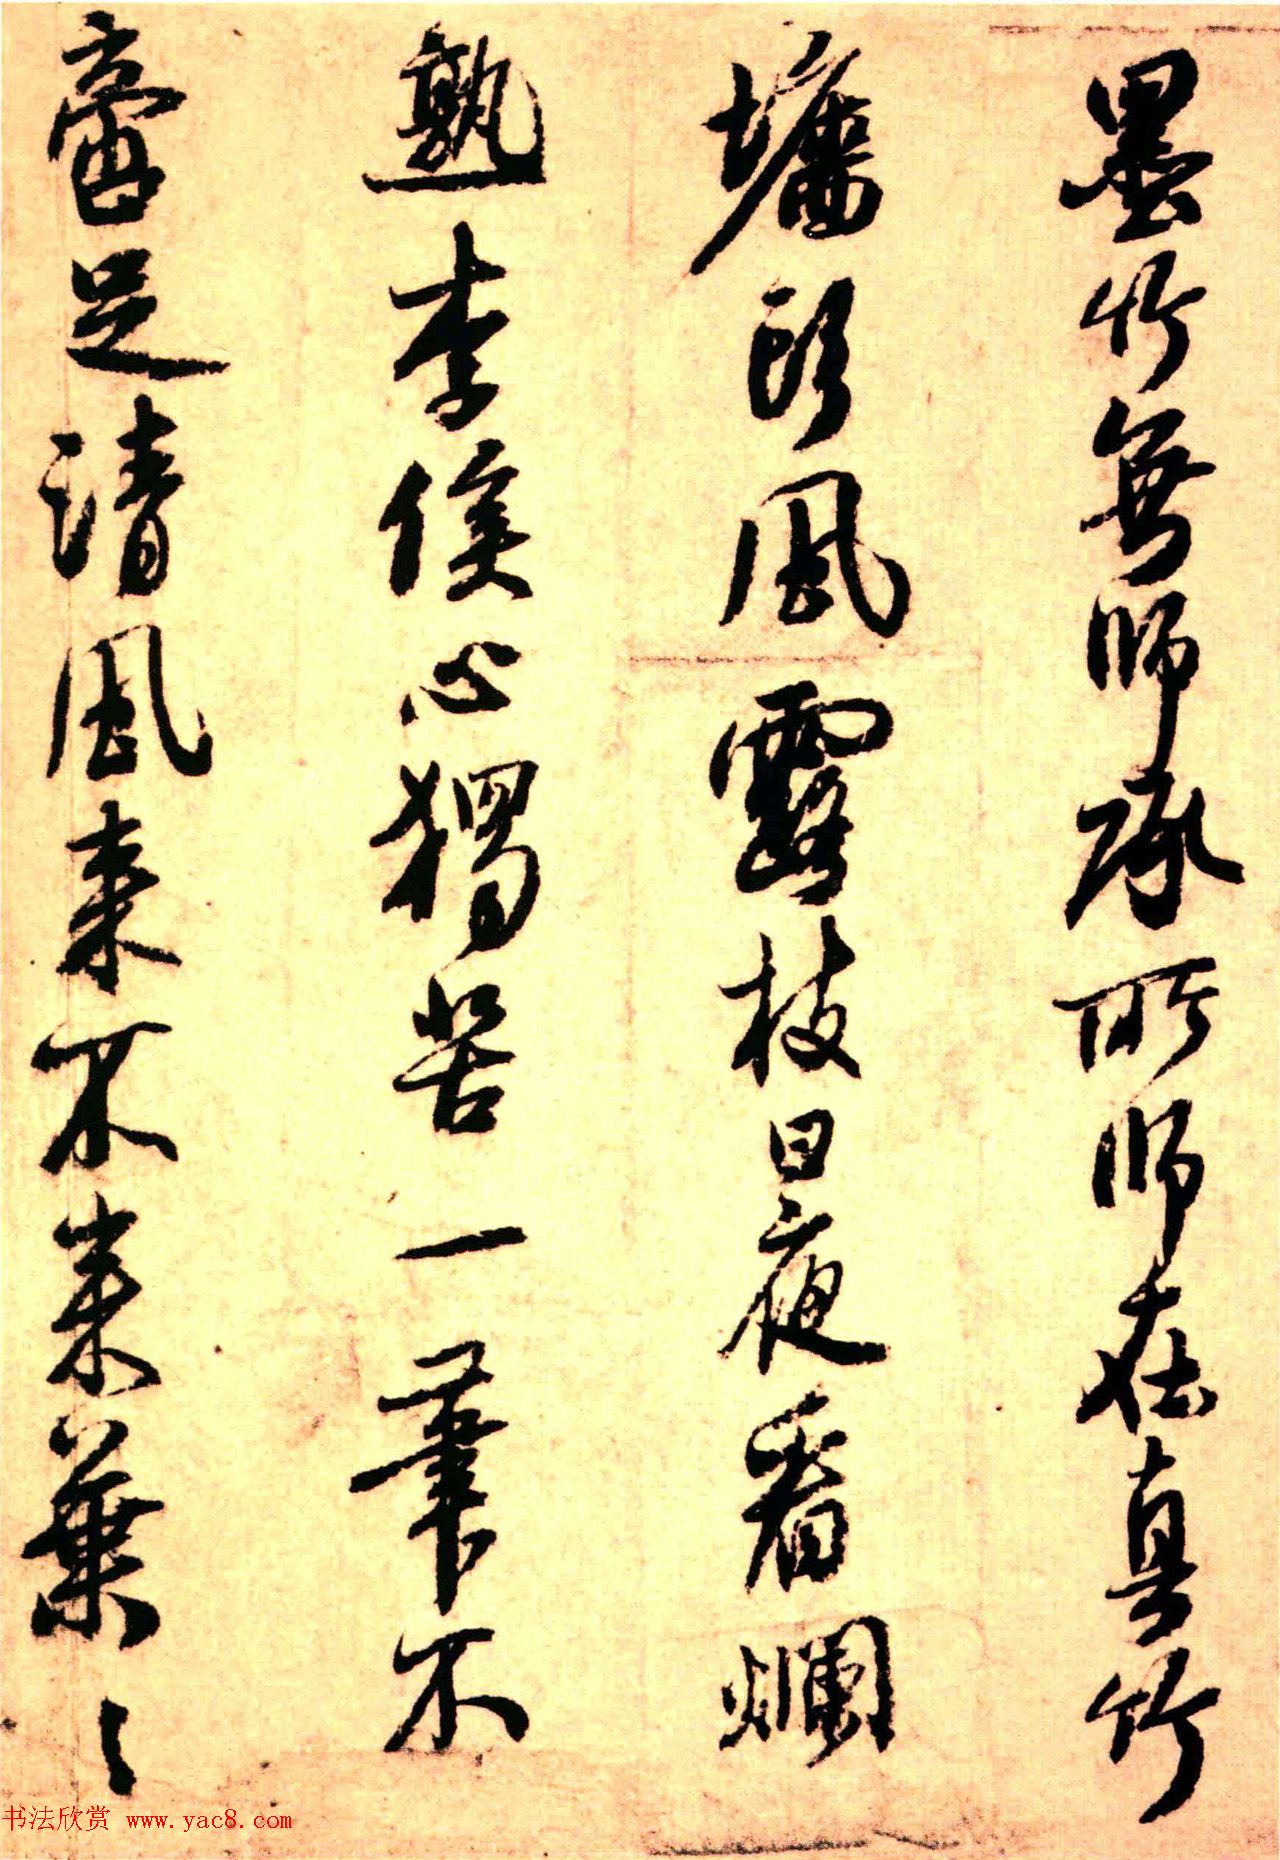 墨竹無師承所師在真竹
墻頭風露枝日夜看爛
熟李侯心獨苦一筆不
嘗足清風来不来葉〻
书法欣赏 www.yac8.com